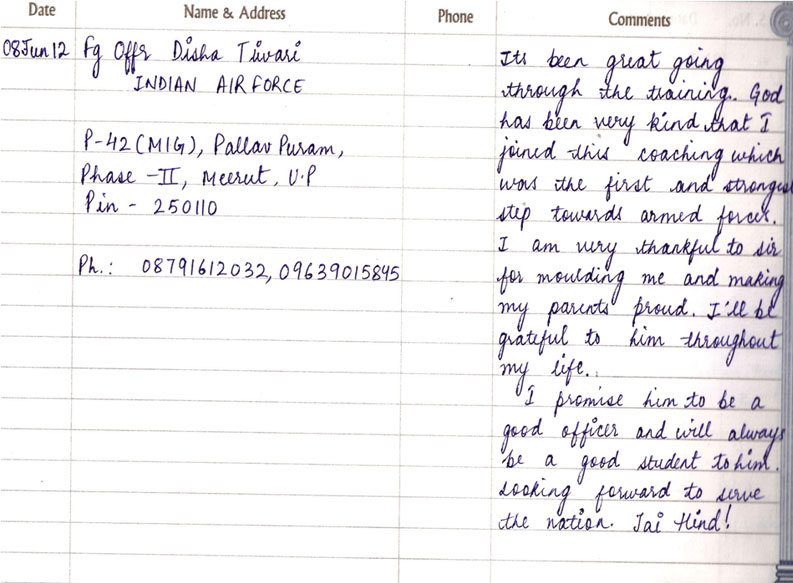 Date Name & Address Phone Comments
08 Jun 12 Fg Offr Disha Tiwari
INDIAN AIR FORCE
P-42 (MIG), Pallav Puram,
Phase -II, Meerut, U.P
Pin - 250110
Ph.: 08791612032, 09639015845
Its been great going
through the training.. God
has been very kind that I
joined this coaching which
was the first and strongest
step towards armed forces.
I am very thankful to sir
for moulding me and making
my parents proud. I'll be
grateful to him throughout
my life.
I promise him to be a
good officer and will always
be a good student to him.
Looking forward to serve
the nation. Jai Hind!